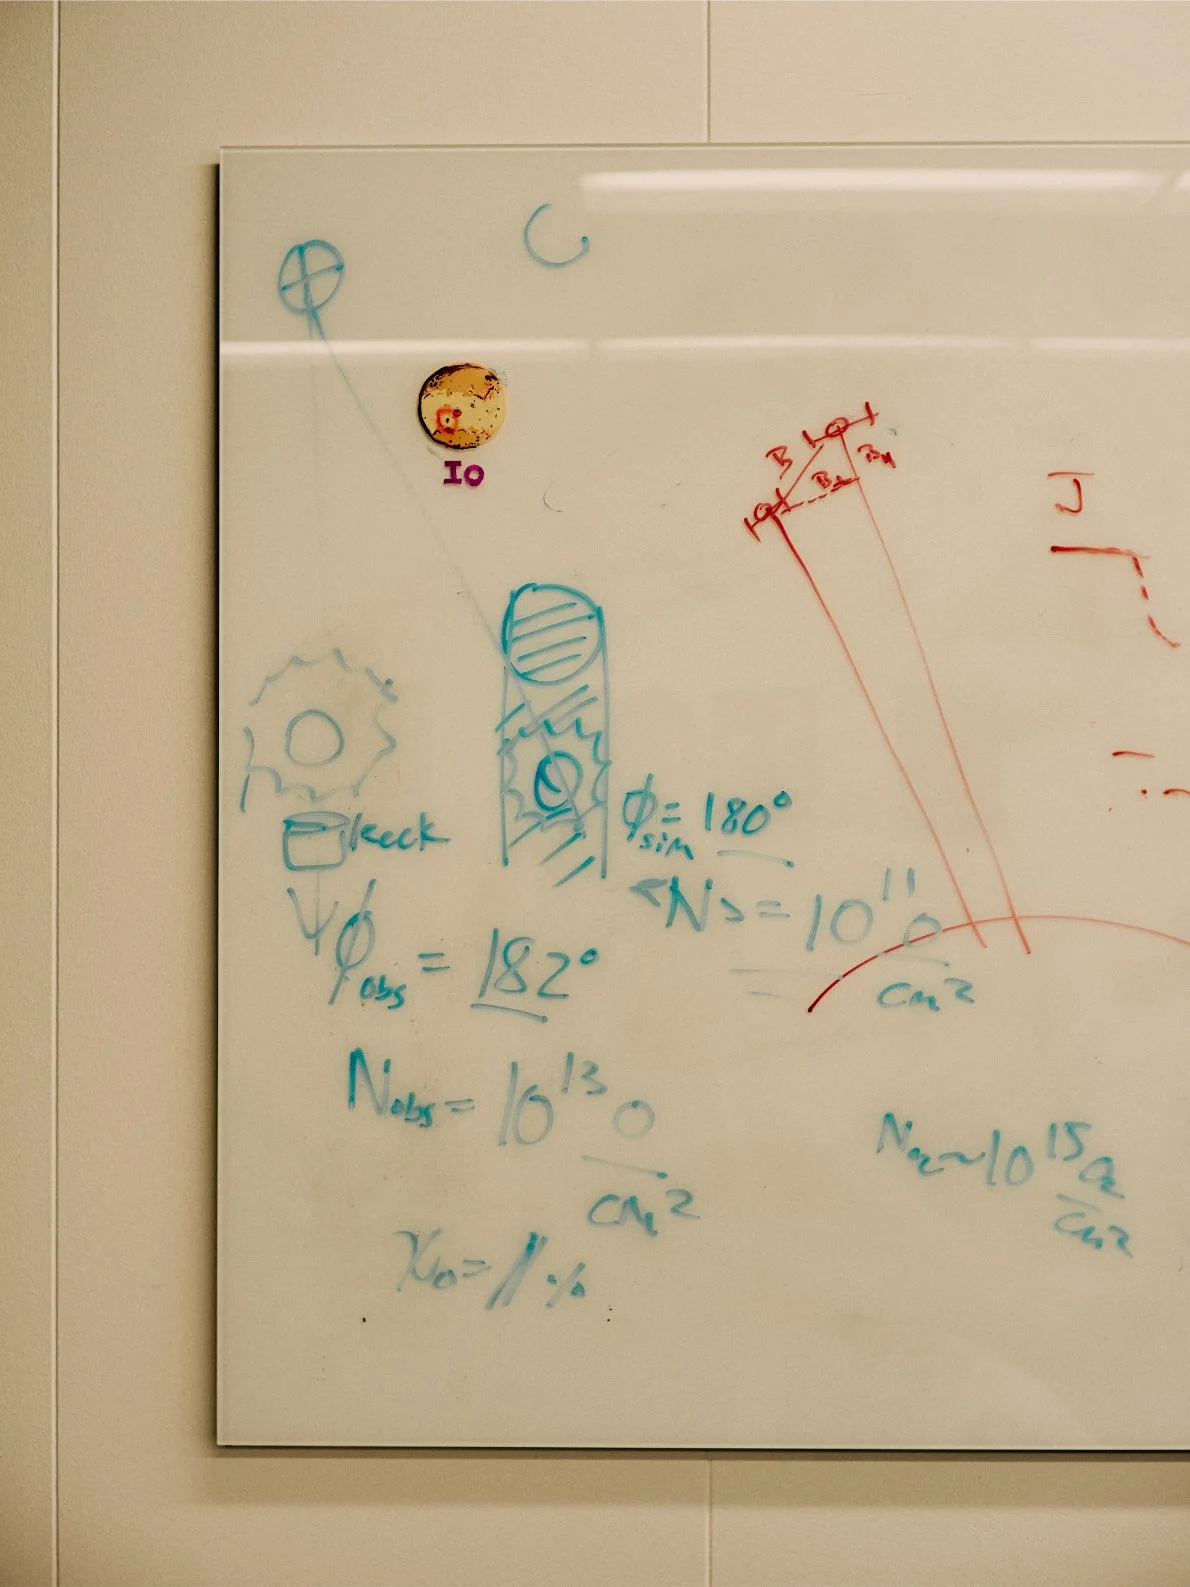 IO
B
B⊥
B∥
J
keck
ϕsim = 180°
<N> = 10^11 O/cm2
ϕobs = 182°
Nobs = 10^13 O/cm2
NO2 ~ 10^15 O2/cm2
χO = 1%